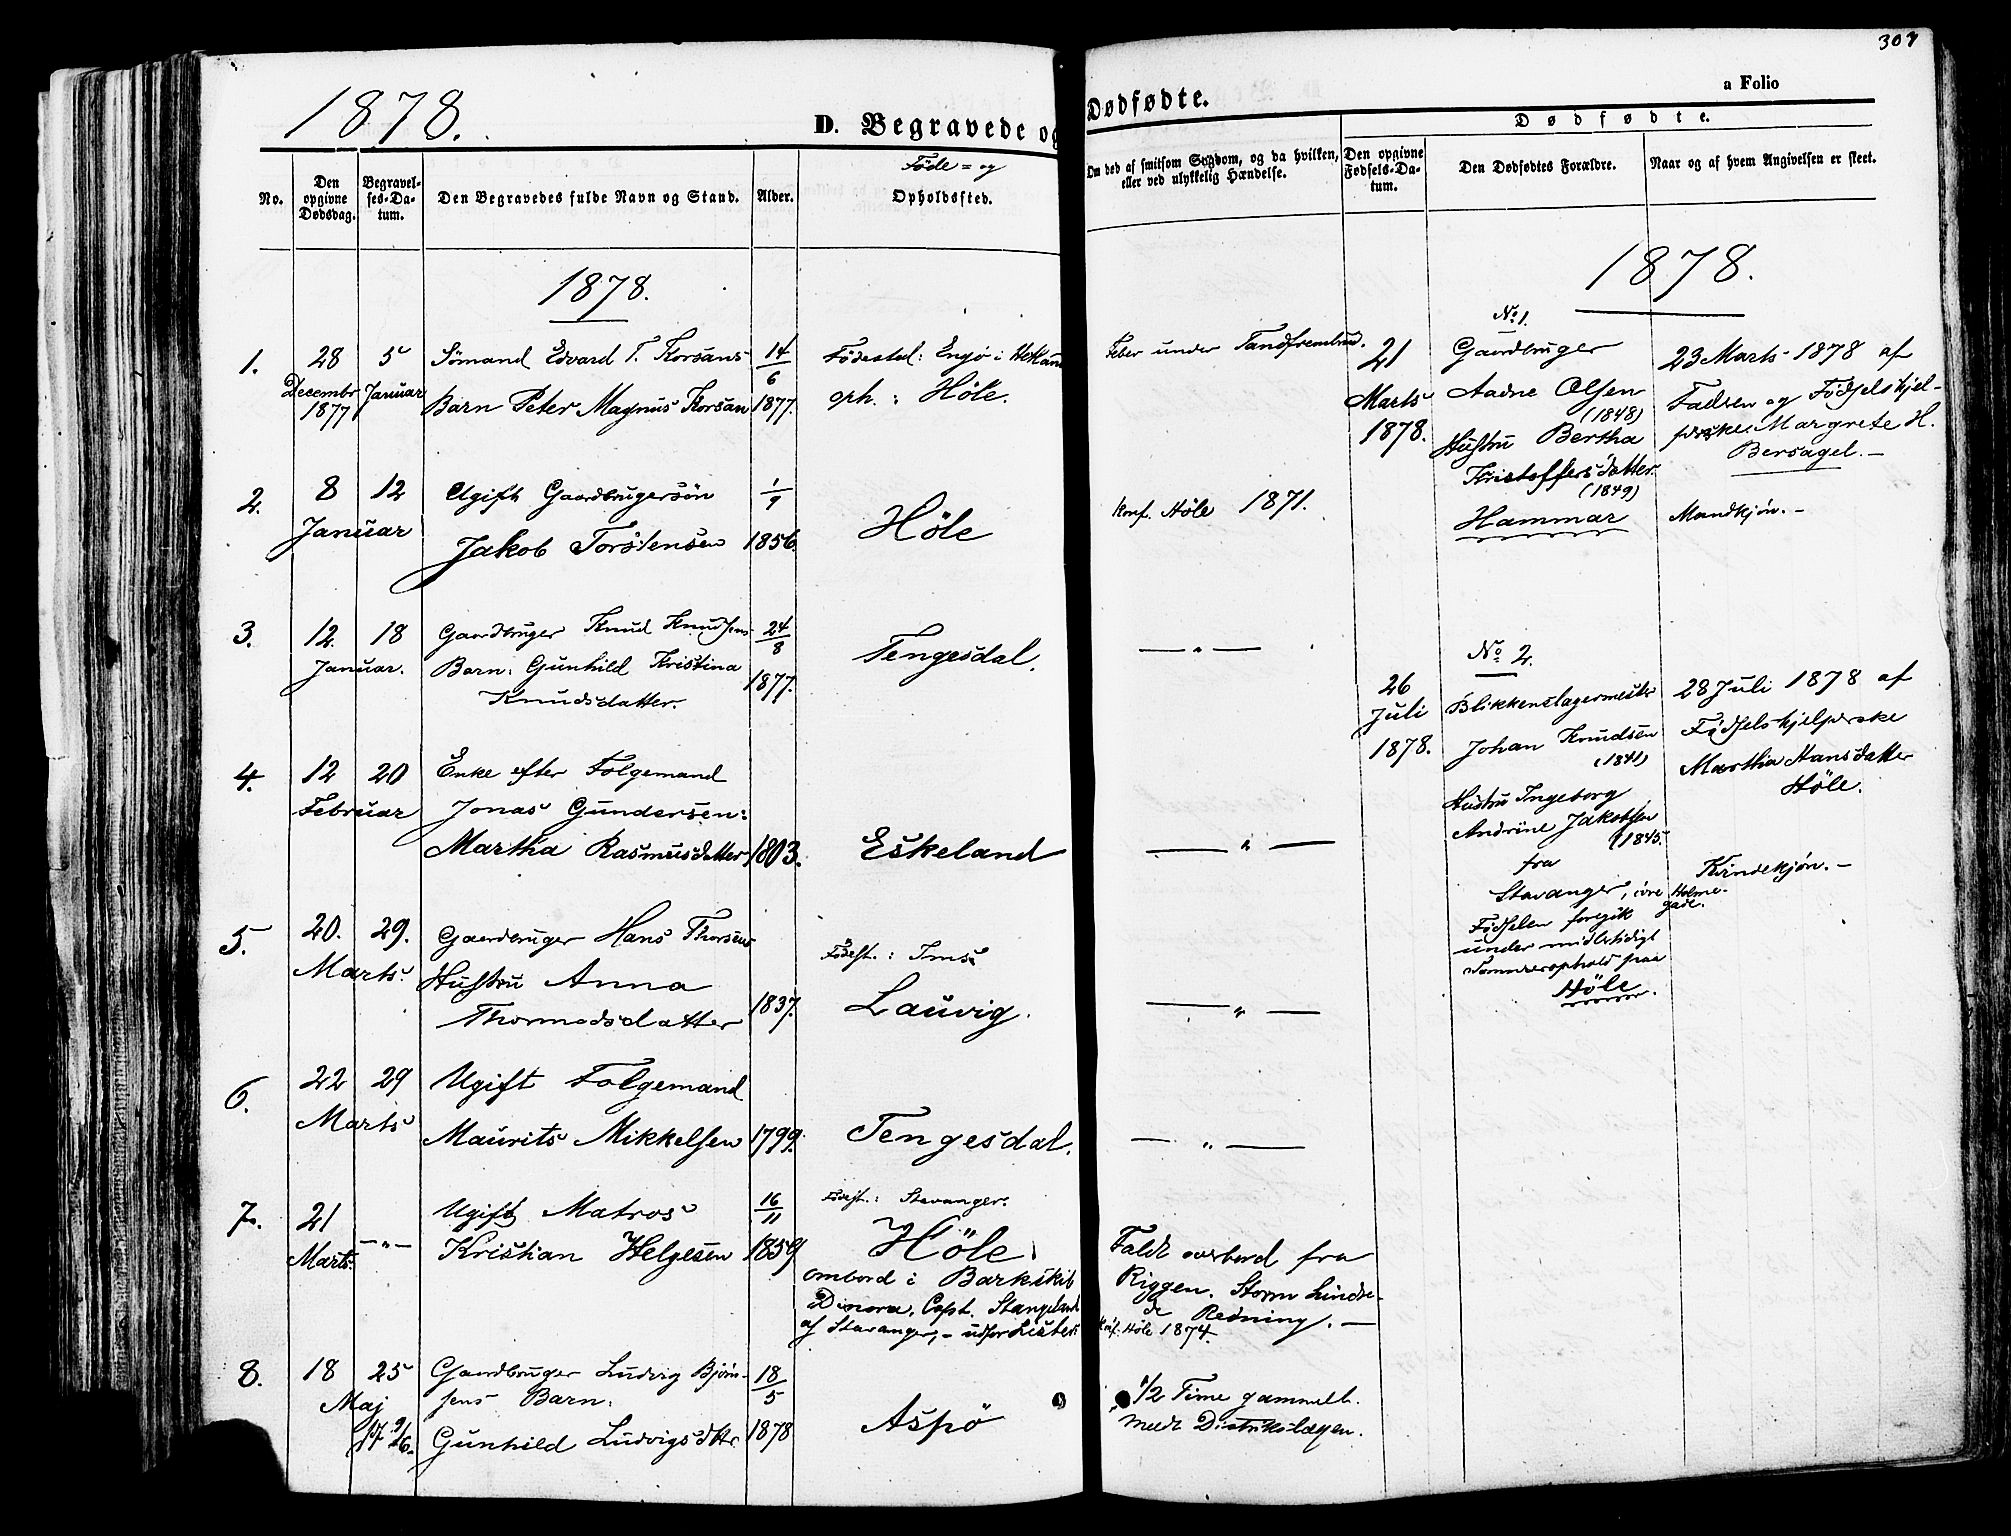 307
a Folio
1878.
D. Begravede og
Dødfødte.
No.
Den opgivne Dødsdag.
Begravel-ses-Da-tum.
Den Begravedes fulde Navn og Stand.
Alder.
Føde= og
Opholdssted.
Om død af smitsom Sygdom, og da hvilken,
eller ved ulykkelig Hændelse.
Dødfødte.
Den opgivne
Fødsels-Da-
tum.
Den Dødfødtes Forældre.
Naar og af hvem Angivelsen er skeet.
1878.
1.
28
Decembr
1877
5
Januar
Sömand Edvard T. Thorsens
Barn Peter Magnus Thorsen
14/6
1877.
Födested: Engö i
oph. : Höle.
Feber under Tandfrembrud.
2.
8
12
Januar
Ugift Gaardbrugersön
Jakob Torstensen
1/9
1856
Höle
Konf. Höle 1871.
3.
12.
18
Januar.
Gaardbruger Knud Knudsens
Barn: Gunhild Kristina
Knudsdatter.
24/8
1877.
Tengesdal.
— " —
4.
12
20
Februar
Enke efter Folgemand
Jonas Gundersen:
Martha Rasmusdatter
1803.
Eskeland
— " —
5.
20.
29.
Marts
Gaardbruger Hans Thorsens
Hustru Anna
Thormodsdatter
1837.
Födest.: Ims
Lauvig.
— " —
6.
22
29
Marts
Ugift Folgemand
Maurits Mikkelsen
1799.
Tengesdal.
— " —
7.
21
Marts
— " —
Ugift Matros
Kristian Helgesen
16/11
1859
Födest.: Stavanger.
Höle
ombord i Barkskib
Dinora, Capt. Stangeland
af Stavanger, - udfor Lister.
Faldt overbord fra
Riggen. Storm hindre-
de Redning. —
Konf. Höle 1874.
8.
18
25
Maj
17 9/6.
Gaardbruger Ludvig Björn-
sens Barn:
Gunhild Ludvigsdttr
18/5
1878
Aspö
1/2 Time gammelt.
Meldt Distriktslægen.
1878.
No. 1.
21
Marts
1878.
Gaardbruger
Aadne Olsen
(1848)
Hustru Bertha
Kristoffersdatter.
(1849)
Hammar
23 Marts 1878 af
Faderen og Födselshjel-
perske Margrete H.
Bersagel. —
Mandkjön. —
No. 2.
26
Juli
1878.
Blikkenslagermester
Johan Knudsen
(1841)
Hustru Ingeborg
Andrine Jakobsen
(1845.
fra
Stavanger, övre Holme-
gade.
Födselen foregik
under midlertidigt
Sommerophold paa
Höle.
28 Juli 1878 af
Födselshjelperske
Martha Hansdatter
Höle.
Kvindekjön. —